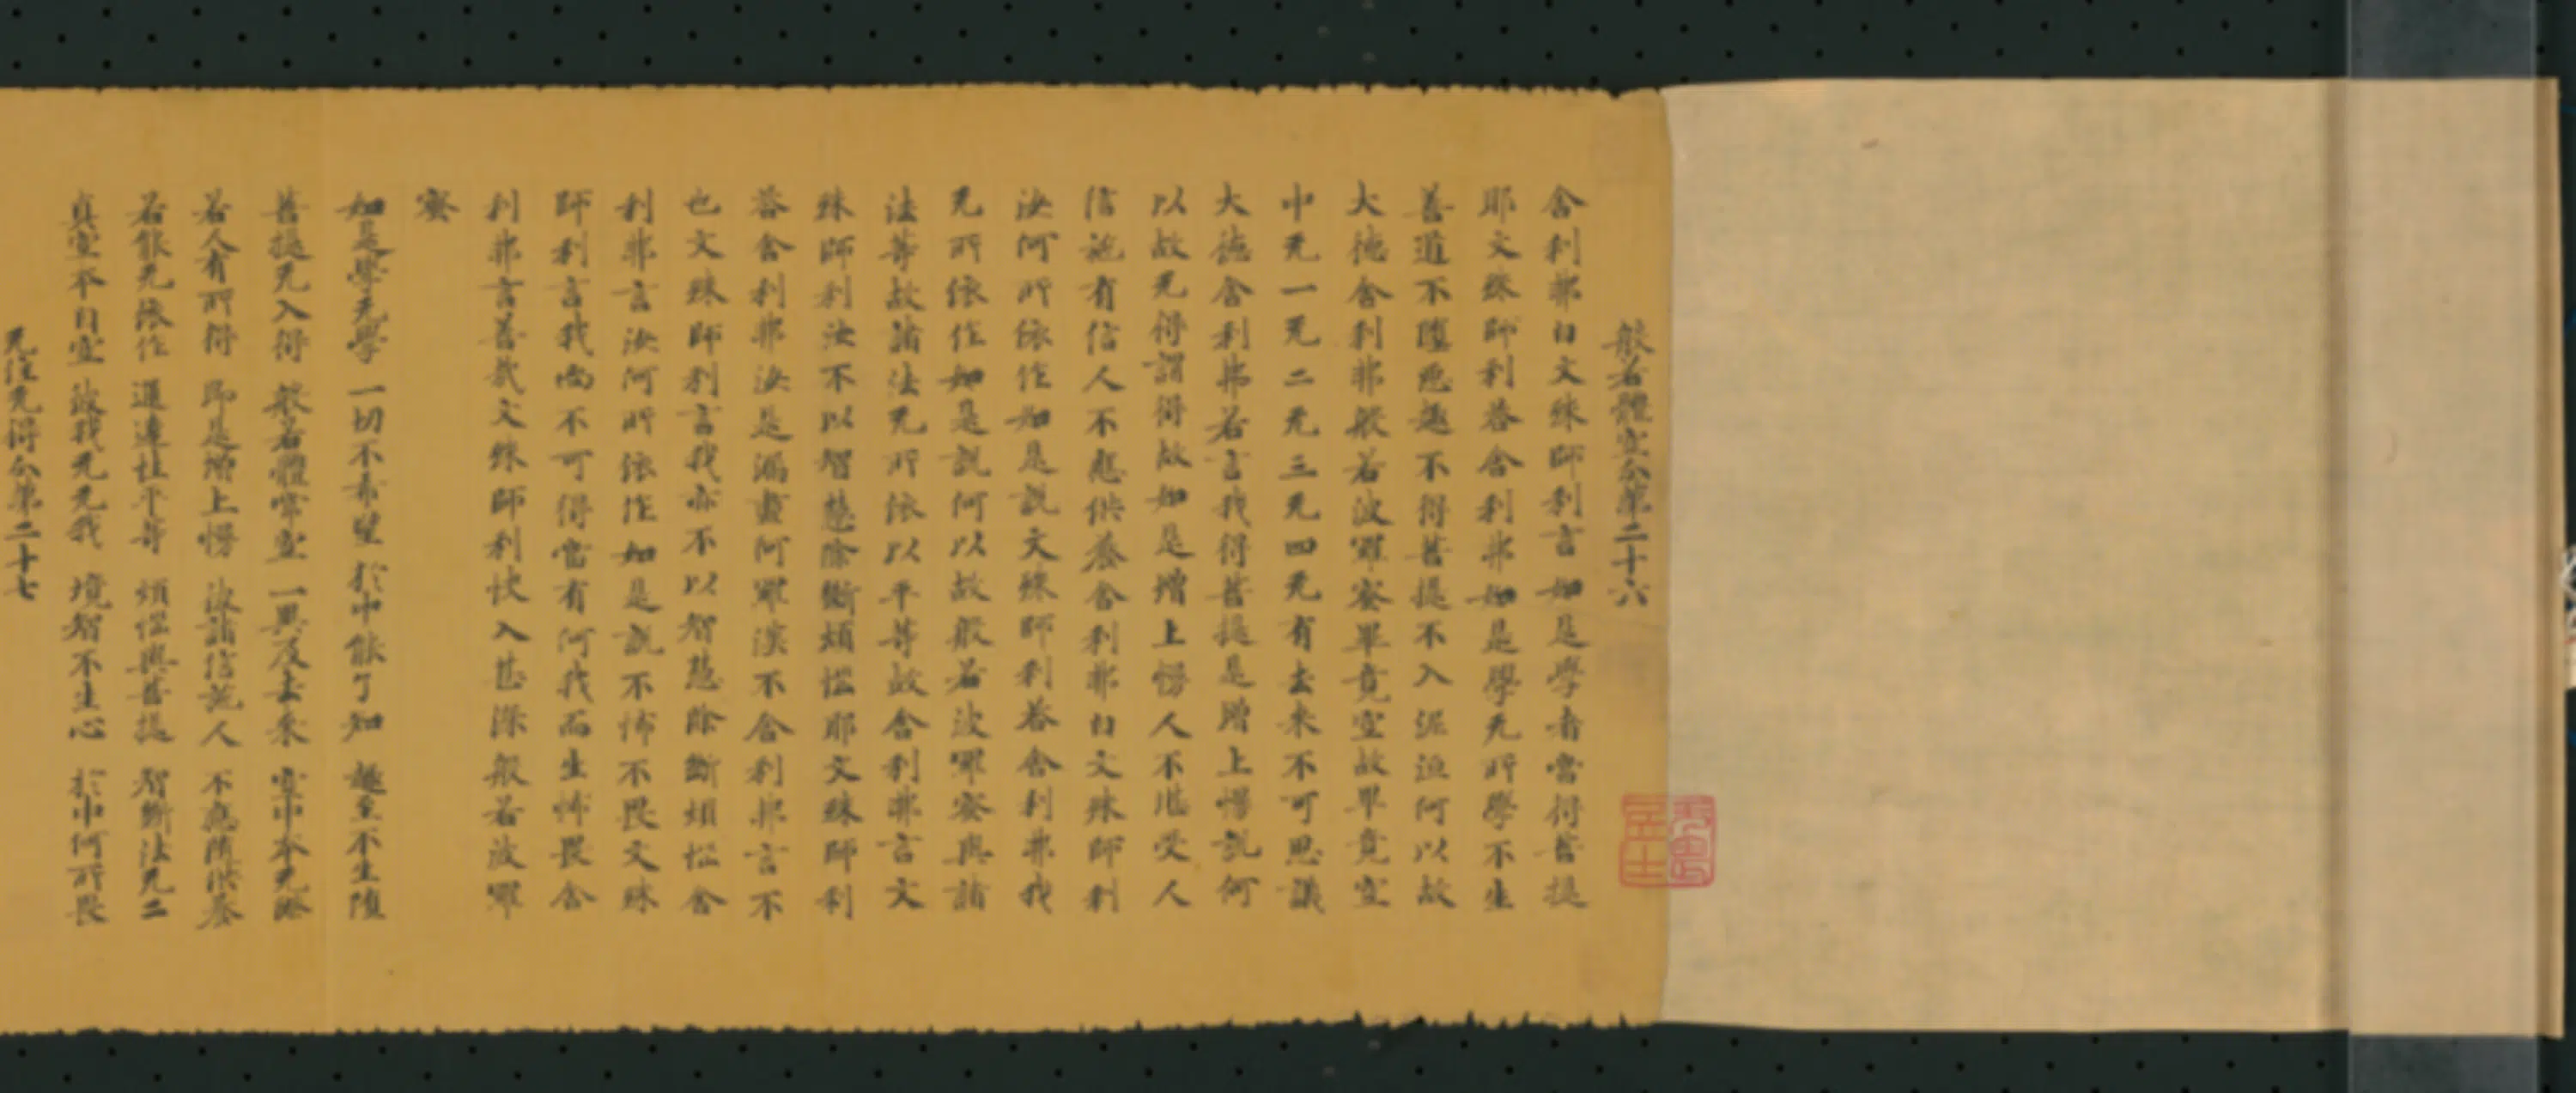 般若體空分第二十六
舍利弗白文殊師利言如是學者當得菩提
耶文殊師利荅舍利弗如是學无所學不生
善道不墮惡趣不得菩提不入泥洹何以故
大德舍利弗般若波羅蜜畢竟空故畢竟空
中无一无二无三无四无有去来不可思議
大德舍利弗若言我得菩提是增上慢說何
以故无得謂得故如是增上慢人不堪受人
信施有信人不應供養舍利弗白文殊師利
汝何所依作如是說文殊師利荅舍利弗我
无所依作如是說何以故般若波羅蜜與諸
法等故諸法无所依以平等故舍利弗言文
殊師利汝不以智慧除斷煩惱耶文殊師利
荅舍利弗汝是漏盡阿羅漢不舍利弗言不
也文殊師利言我亦不以智慧除斷煩惱舍
利弗言汝何所依作如是說不怖不畏文殊
師利言我尚不可得當有何我而生怖畏舍
利弗言善哉文殊師利快入甚深般若波羅
蜜
如是學无學 一切不希望 於中能了知 趣至不生墮
菩提无入得 般若體常空 一異及去来 空中本无
若人有所得 即是增上慢 汝諸信施人 不應隨供養
若能无依作 逥違性平等 煩惱與菩提 智斷法无二
真空不自空 彼我元无我 境智不生心 於中何所畏
无住无得分第二十七